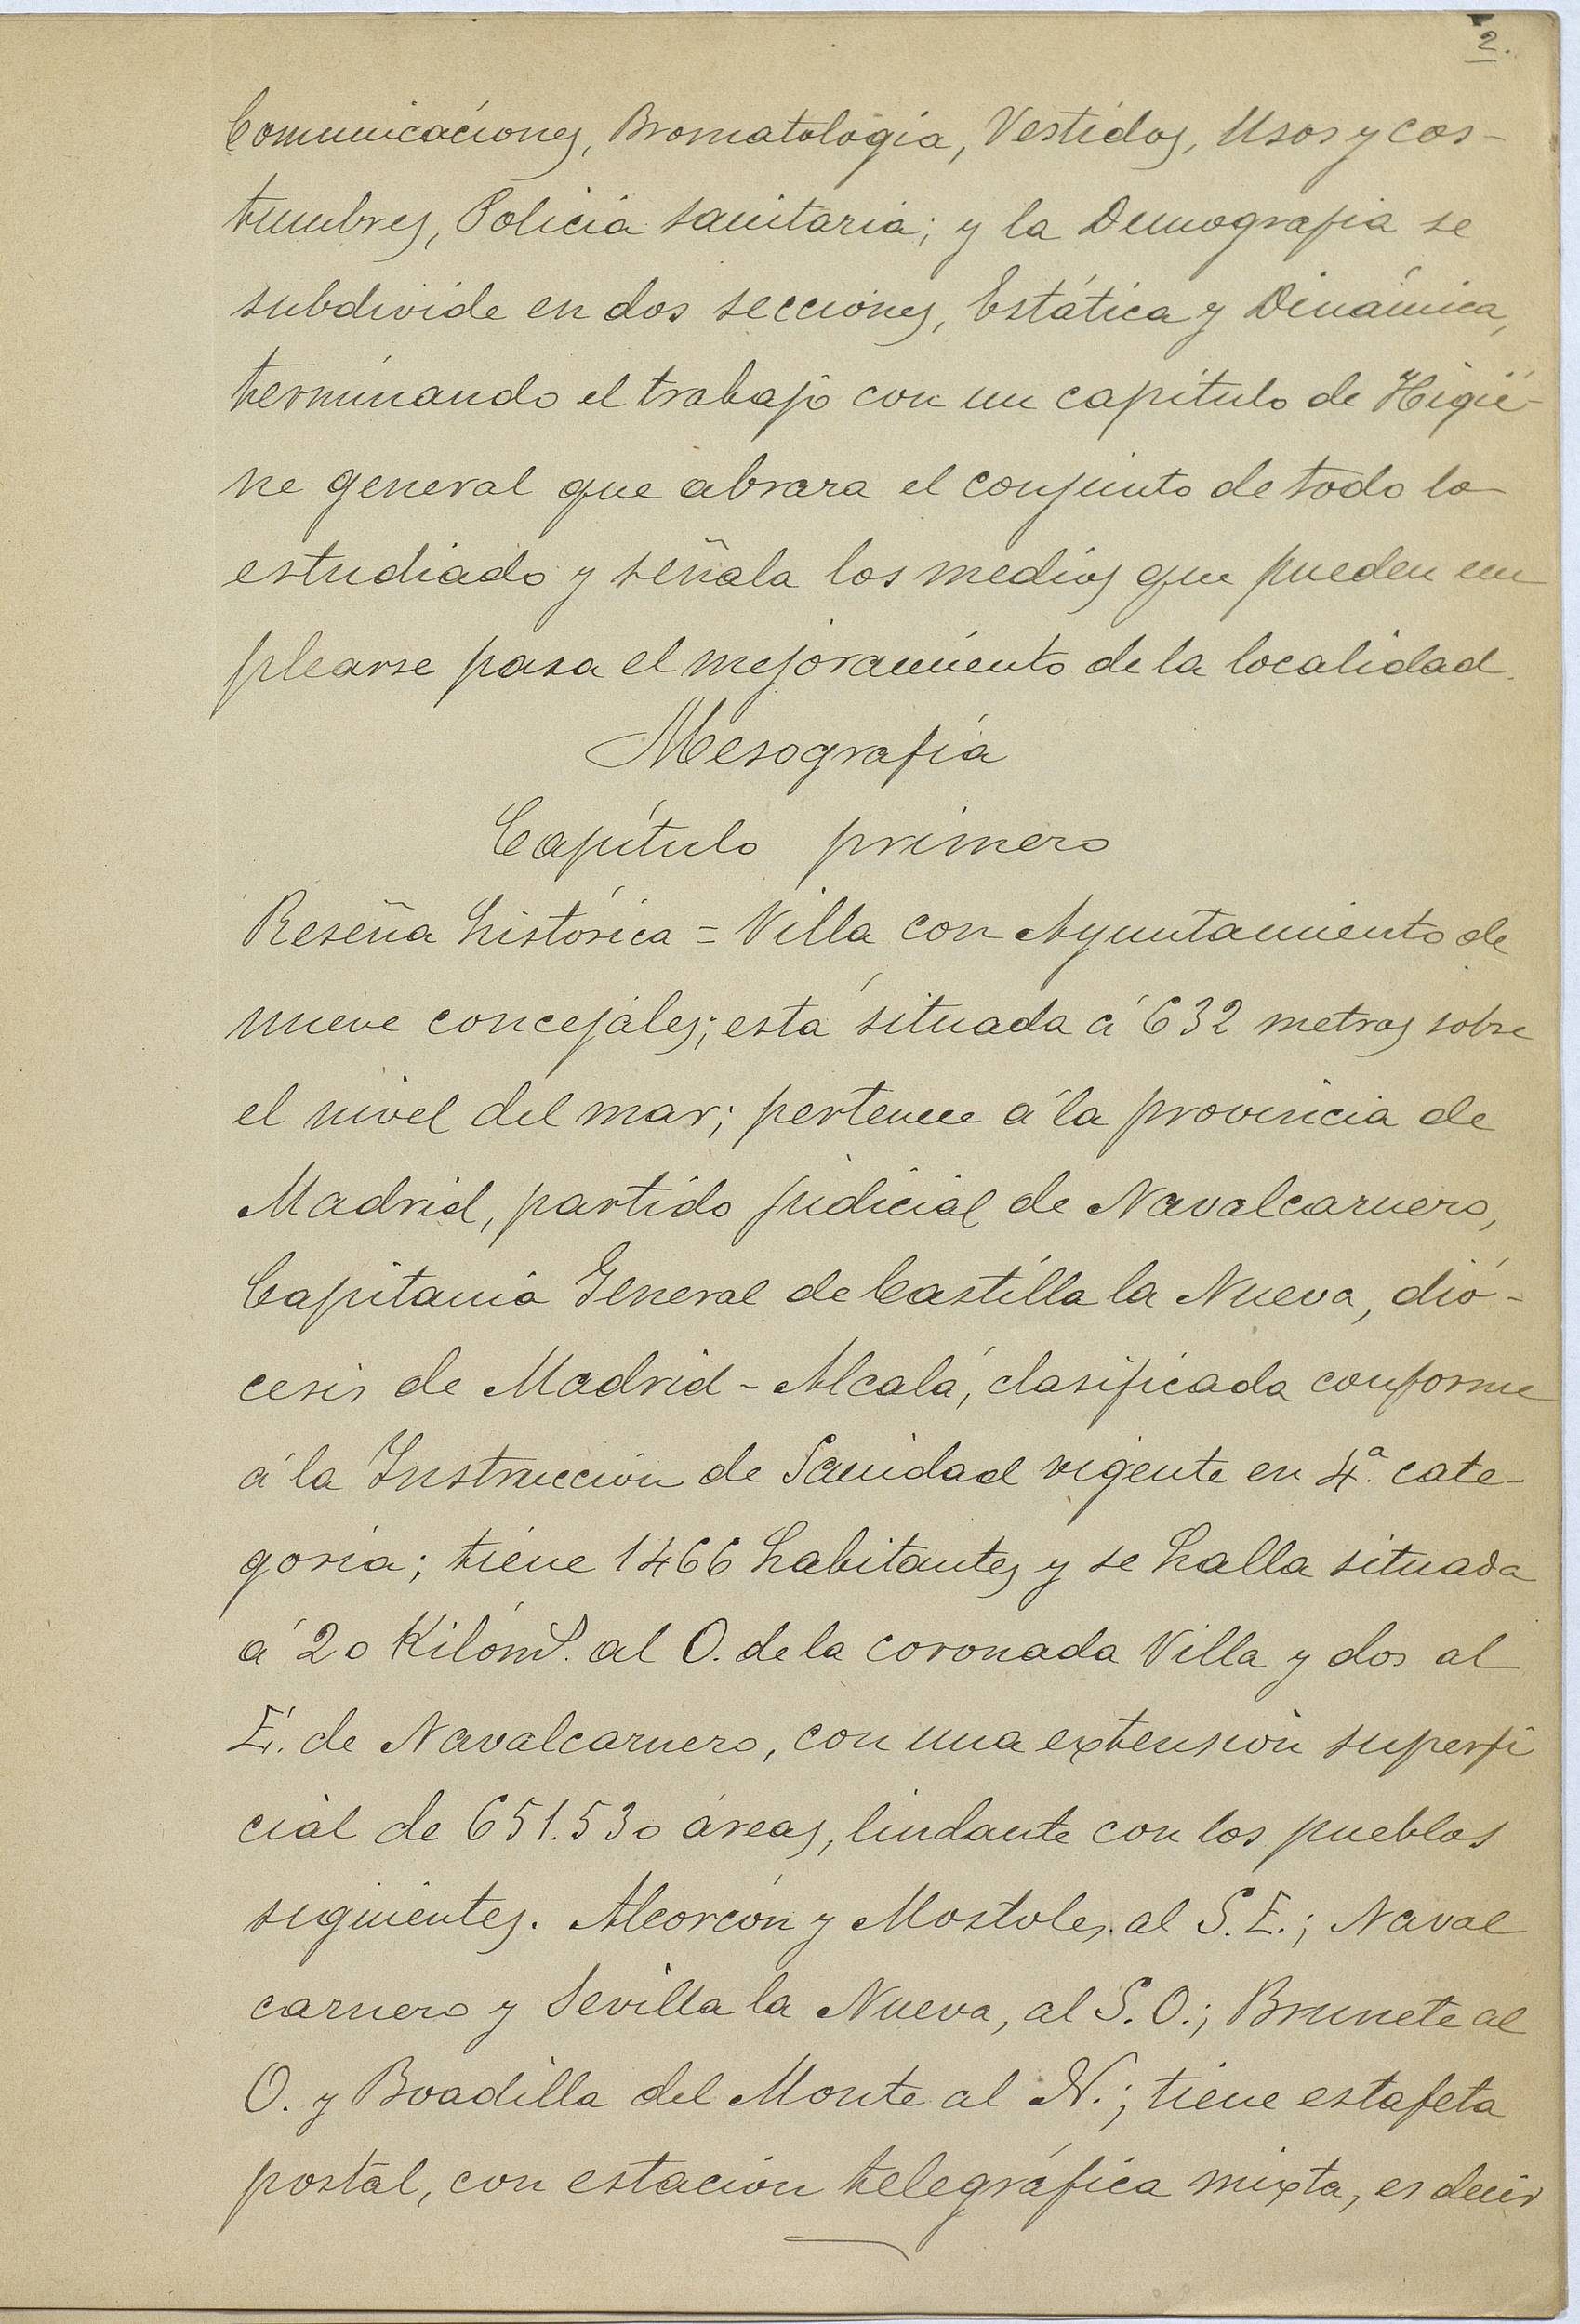 2.
Comunicaciones, Bromatologia, Vestidos, Usos y cos-
tumbres, Policia sanitaria; y la Demografia se
subdivide en dos secciones, Estática y Dinámica,
terminando el trabajo con un capitulo de Higie-
ne general que abraza el conjunto de todo lo
estudiado y señala los medios que pueden em
plearse para el mejoramiento de la localidad.
Mesografía
Capítulo primero
Reseña histórica = Villa con Ayuntamiento de
nueve concejales; está situada á 632 metros sobre
el nivel del mar; pertenece á la provincia de
Madrid, partido judicial de Navalcarnero,
Capitania General de Castilla la Nueva, dió-
cesis de Madrid - Alcalá, clasificada conforme
á la Instrucción de Sanidad vigente en 4ª. cate-
goria; tiene 1466 habitantes y se halla situada
á 20 KilómS. al O. de la coronada Villa y dos al
E. de Navalcarnero, con una extensión superfi
cial de 651.530 áreas, lindante con los pueblos
siguientes. Alcorcón y Mostoles. al S.E.; Naval
carnero y Sevilla la Nueva, al S.O.; Brunete al
O. y Boadilla del Monte al N.; tiene estafeta
postal, con estación telegráfica mixta, es decir